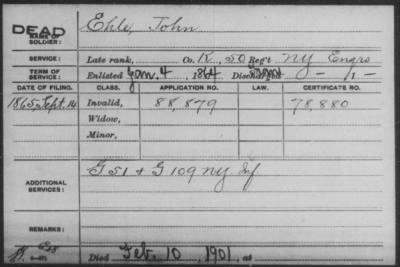 DEAD
NAME OF SOLDIER: Ehle, John
SERVICE: Late rank, Co. K, 50 Reg't NY Engrs
TERM OF SERVICE: Enlisted Jan. 4, 1864 Discharged
DATE OF FILING. CLASS. APPLICATION NO. LAW. CERTIFICATE NO.
1865, Sept. 14 Invalid, 88,879 78,880
Widow,
Minor,
ADDITIONAL SERVICES: G 51 & G 109 NY. Inf.
REMARKS:
Died Feb. 10, 1901, at